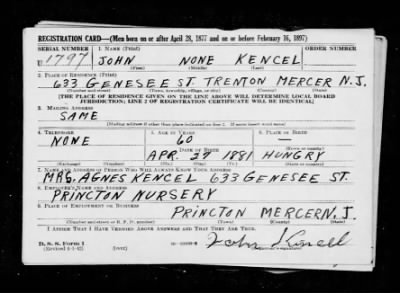 REGISTRATION CARD—(Men born on or after April 28, 1877 and on or before February 16, 1897)
SERIAL NUMBER 1. NAME (Print) ORDER NUMBER
U 1797 JOHN NONE KENCEL
2. PLACE OF RESIDENCE (Print)
633 GENESEE ST. TRENTON MERCER N.J.
(Number and street) (Town, township, village, or city) (County) (State)
[THE PLACE OF RESIDENCE GIVEN ON THE LINE ABOVE WILL DETERMINE LOCAL BOARD
JURISDICTION; LINE 2 OF REGISTRATION CERTIFICATE WILL BE IDENTICAL]
3. MAILING ADDRESS
SAME
[Mailing address if other than place indicated on line 2. If same insert word same]
4. TELEPHONE 5. AGE IN YEARS 6. PLACE OF BIRTH
NONE 60 —
DATE OF BIRTH (Town or county)
APR. 27 1881 HUNGRY
(Exchange) (Number) (Mo.) (Day) (Yr.) (State or country)
7. NAME AND ADDRESS OF PERSON WHO WILL ALWAYS KNOW YOUR ADDRESS
MRS. AGNES KENCEL 633 GENESEE ST.
8. EMPLOYER'S NAME AND ADDRESS
PRINCTON NURSERY
9. PLACE OF EMPLOYMENT OR BUSINESS
PRINCTON MERCER N.J.
(Number and street or R. F. D. number) (Town) (County) (State)
I AFFIRM THAT I HAVE VERIFIED ABOVE ANSWERS AND THAT THEY ARE TRUE.
D. S. S. Form 1
(Revised 4-1-42) (over) John Kencel